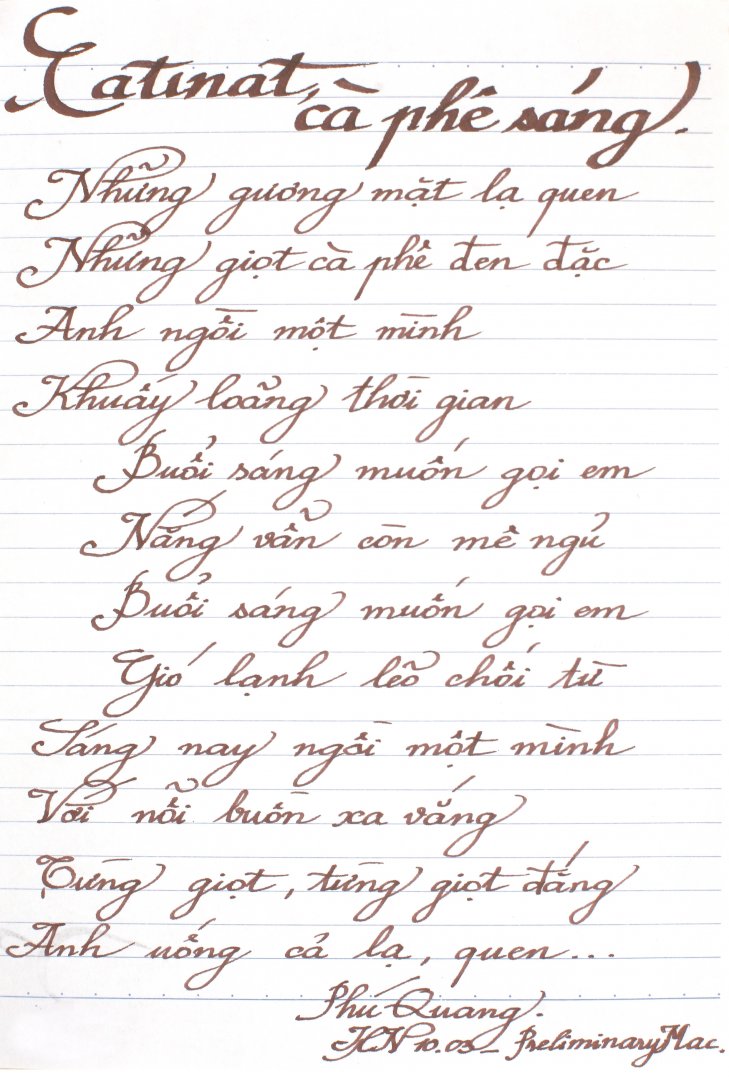 Catinat,
cà phê sáng.
Những gương mặt lạ quen
Những giọt cà phê đen đặc
Anh ngồi một mình
Khuấy loãng thời gian
Buổi sáng muốn gọi em
Nắng vẫn còn mê ngủ
Buổi sáng muốn gọi em
Gió lạnh lẽo chối từ
Sáng nay ngồi một mình
Với nỗi buồn xa vắng
Từng giọt, từng giọt đắng
Anh uống cả lạ, quen...
Phú Quang.
HN 10.03_ PreliminaryMac.